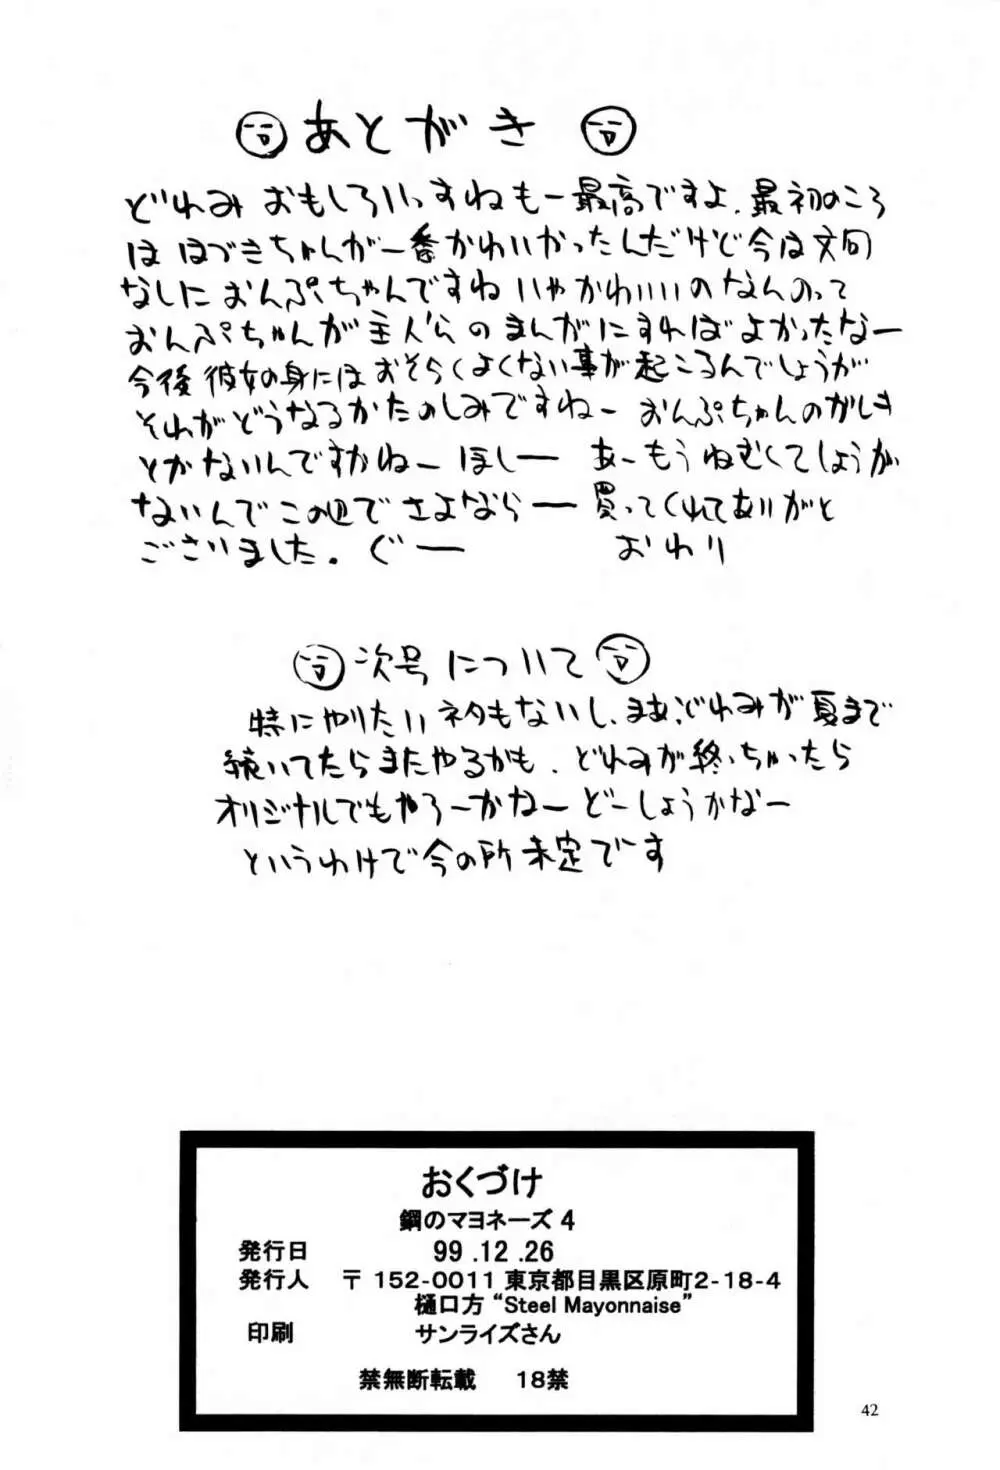 あとがき
どれみ おもしろいっすねもー最高ですよ.最初のころ
は はづきちゃんが一番かわいかったんだけど今は文句
なしに おんぷちゃんですね いやかわいいのなんのって
おんぷちゃんが主人公のまんがにすればよかったなー
今後 彼女の身にはおそらくよくない事が起こるんでしょうが
それがどうなるかたのしみですねー おんぷちゃんのがしき
とかないんですかねー ほしー あーもうねむくてしょうが
ないんでこの辺でさよならー 買ってくれてありがと
ございました. ぐー おわり
次号について
特にやりたいネタもないし、まあ、どれみが夏まで
続いてたらまたやるかも. どれみが終っちゃったら
オリジナルでもやろーかなー どーしょうかなー
というわけで今の所未定です
おくづけ
鋼のマヨネーズ 4
発行日 99.12.26
発行人 〒152-0011 東京都目黒区原町2-18-4
樋口方 “Steel Mayonnaise”
印刷 サンライズさん
禁無断転載 18禁
42